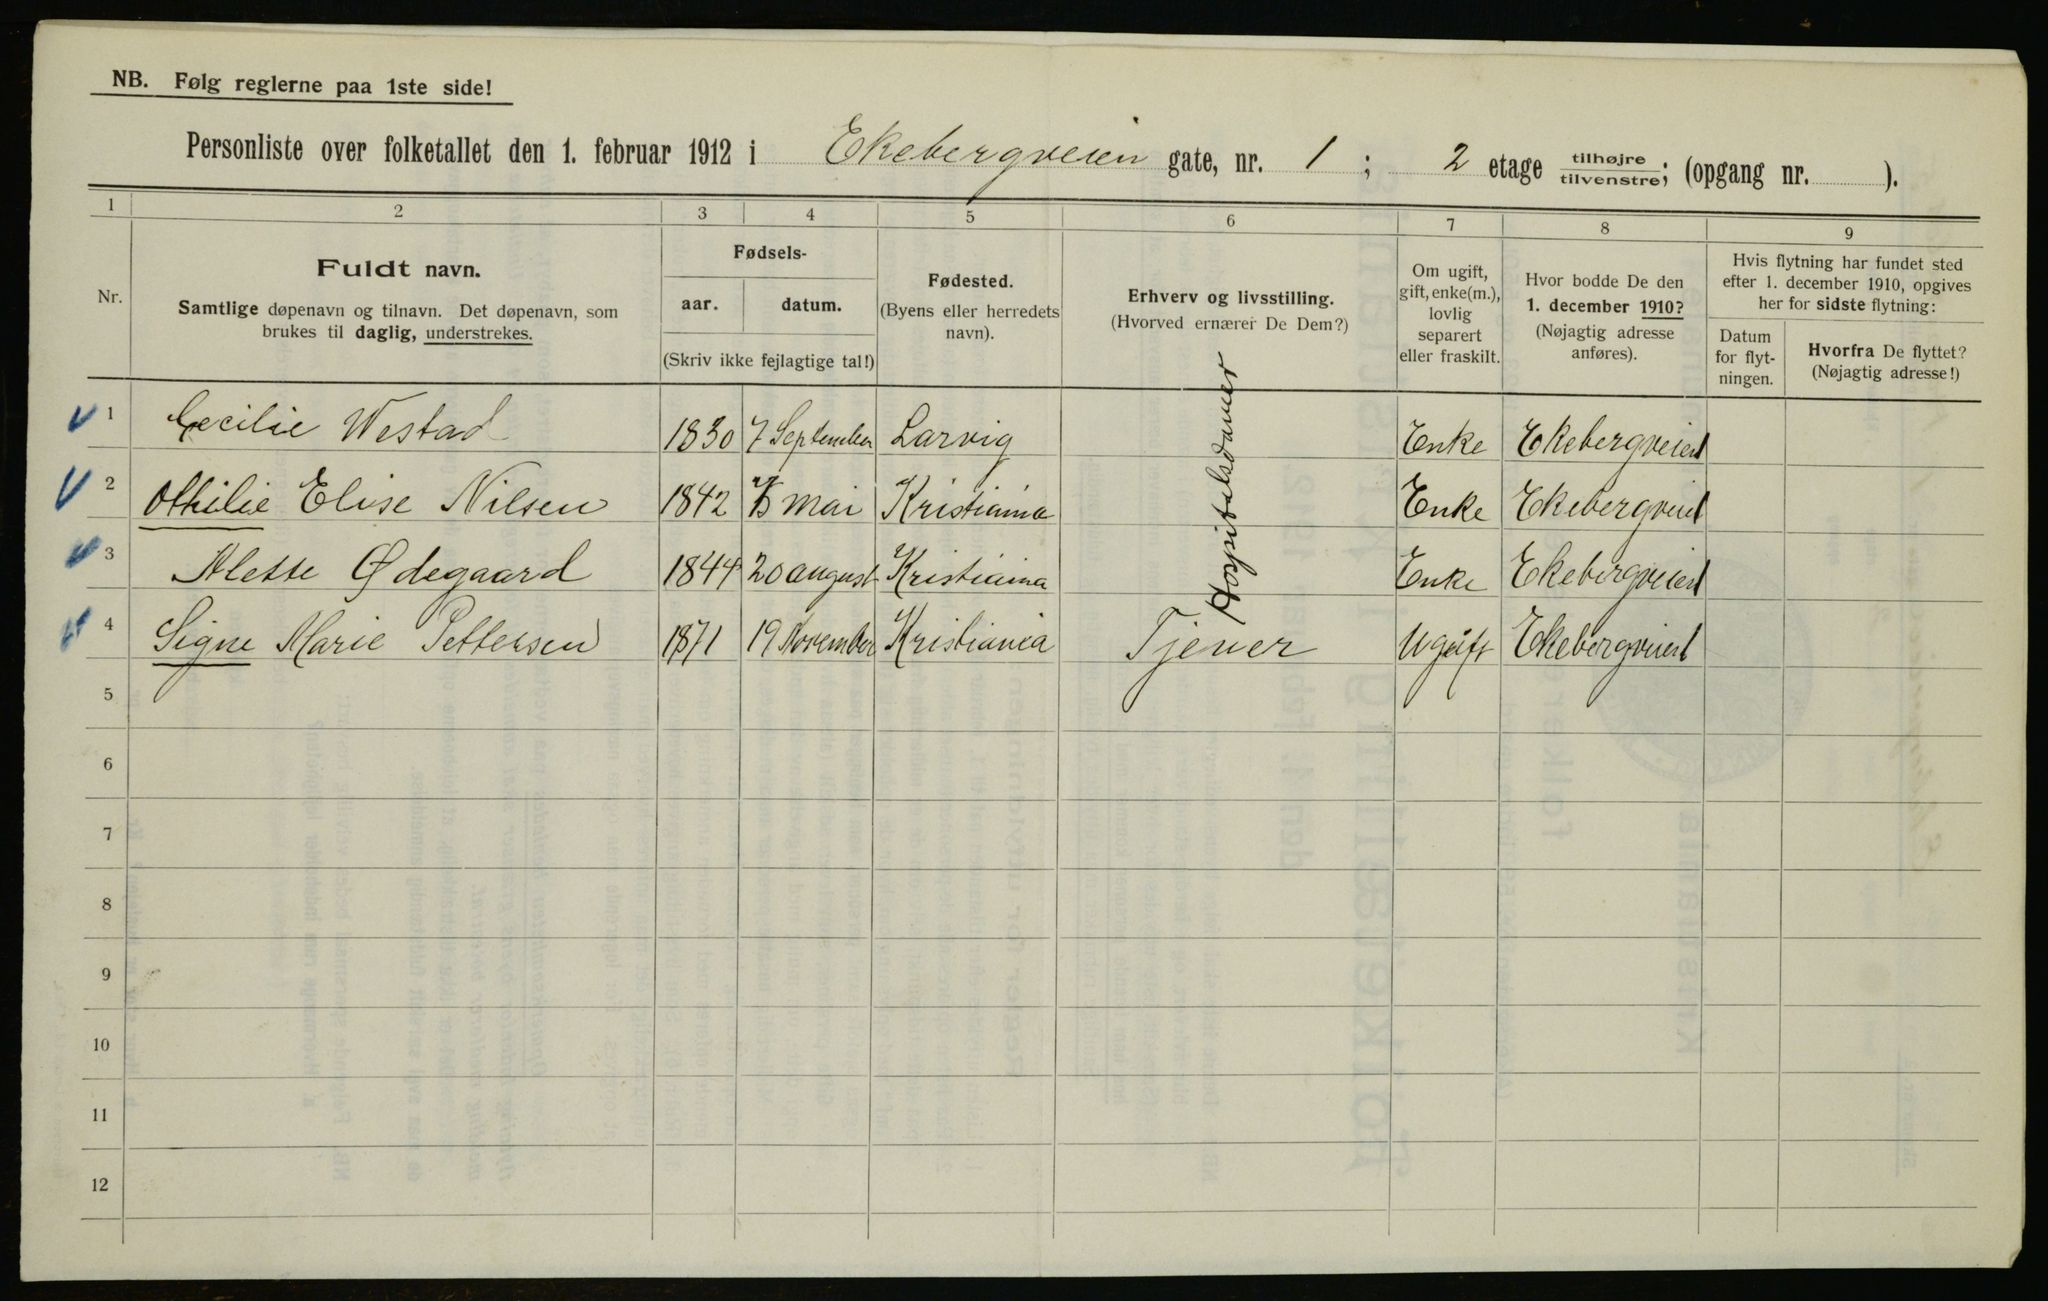 NB. Følg reglerne paa 1ste side!
Personliste over folketallet den 1. februar 1912 i Ekebergveien gate, nr. 1 ; 2 etage tilhøjre/tilvenstre; (opgang nr. ).
1 2 3 4 5 6 7 8 9
Nr.
Fuldt navn.
Samtlige døpenavn og tilnavn. Det døpenavn, som
brukes til daglig, understrekes.
Fødsels-
aar. datum.
(Skriv ikke fejlagtige tal!)
Fødested.
(Byens eller herredets
navn).
Erhverv og livsstilling.
(Hvorved ernærer De Dem?)
Om ugift,
gift, enke(m.),
lovlig
separert
eller fraskilt.
Hvor bodde De den
1. december 1910?
(Nøjagtig adresse
anføres).
Hvis flytning har fundet sted
efter 1. december 1910, opgives
her for sidste flytning:
Datum
for flyt-
ningen.
Hvorfra De flyttet?
(Nøjagtig adresse!)
1 Cecilie Westad 1830 7 September Larvig Enke Ekebergveien 1
2 Othilie Elise Nilsen 1842 mai Kristiania Enke Ekebergveien 1
3 Alette Ødegaard 1844 20 august Kristiania Enke Ekebergveien 1
Hospitalsdamer
4 Signe Marie Pettersen 1871 19 November Kristiania Tjener Ugift Ekebergveien 1
5
6
7
8
9
10
11
12